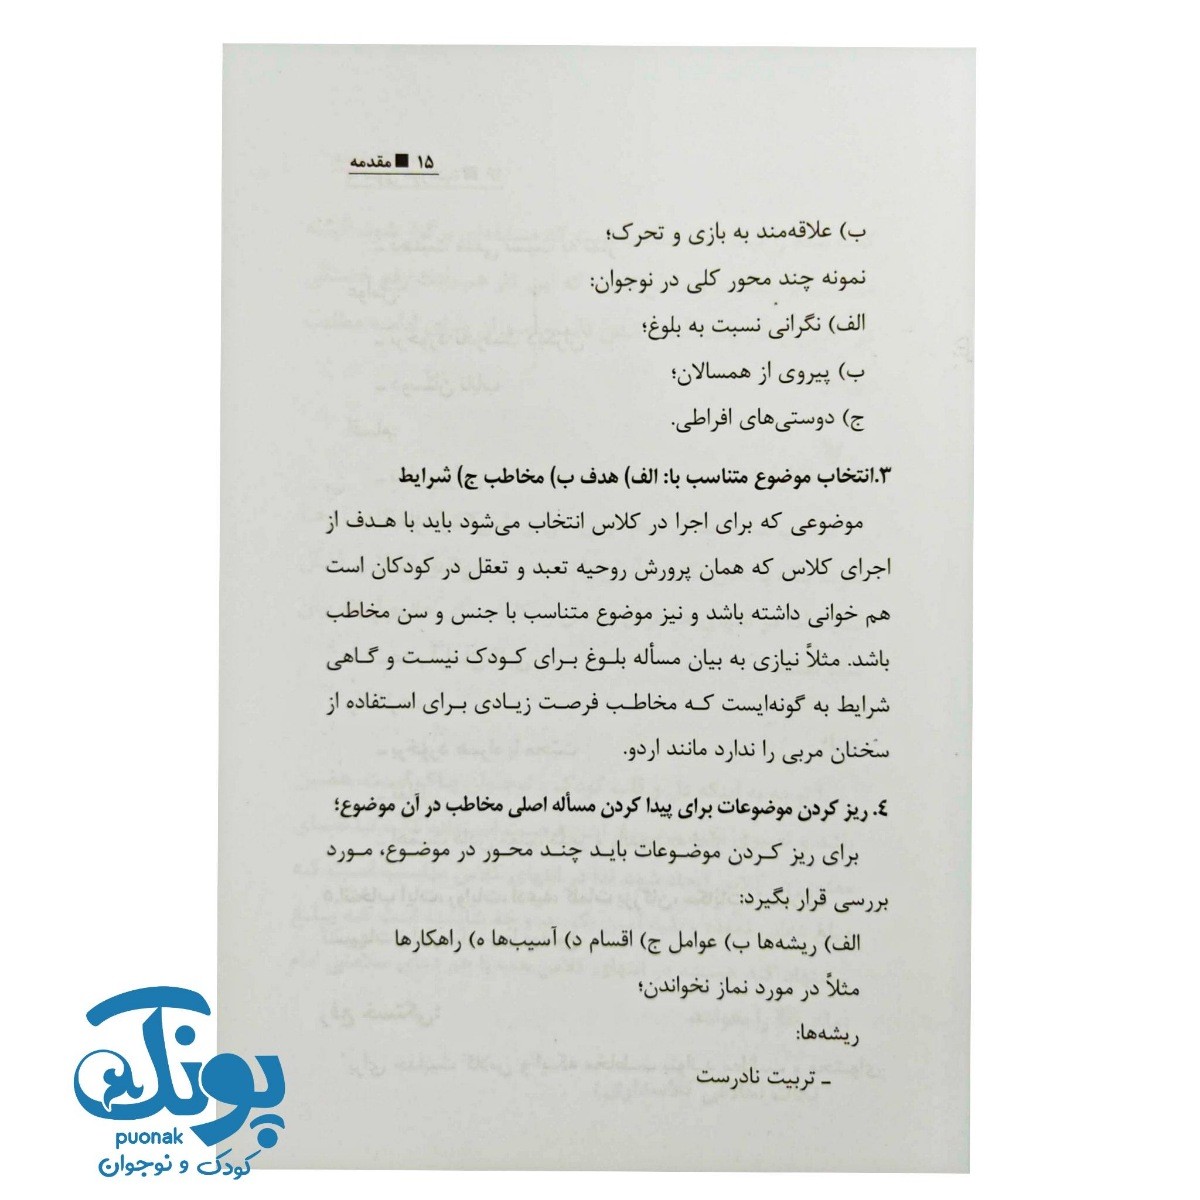 ۱۵ ■ مقدمه
ب) علاقه‌مند به بازی و تحرک؛
نمونه چند محور کلی در نوجوان:
الف) نگرانی نسبت به بلوغ؛
ب) پیروی از همسالان؛
ج) دوستی‌های افراطی.
۳.انتخاب موضوع متناسب با: الف) هدف ب) مخاطب ج) شرایط
موضوعی که برای اجرا در کلاس انتخاب می‌شود باید با هدف از
اجرای کلاس که همان پرورش روحیه تعبد و تعقل در کودکان است
هم خوانی داشته باشد و نیز موضوع متناسب با جنس و سن مخاطب
باشد. مثلاً نیازی به بیان مسأله بلوغ برای کودک نیست و گاهی
شرایط به گونه‌ایست که مخاطب فرصت زیادی برای استفاده از
سخنان مربی را ندارد مانند اردو.
۴. ریز کردن موضوعات برای پیدا کردن مسأله اصلی مخاطب در آن موضوع؛
برای ریز کردن موضوعات باید چند محور در موضوع، مورد
بررسی قرار بگیرد:
الف) ریشه‌ها ب) عوامل ج) اقسام د) آسیب‌ها ه) راهکارها
مثلاً در مورد نماز نخواندن؛
ریشه‌ها:
ـ تربیت نادرست
پونک
puonak
کودک و نوجوان